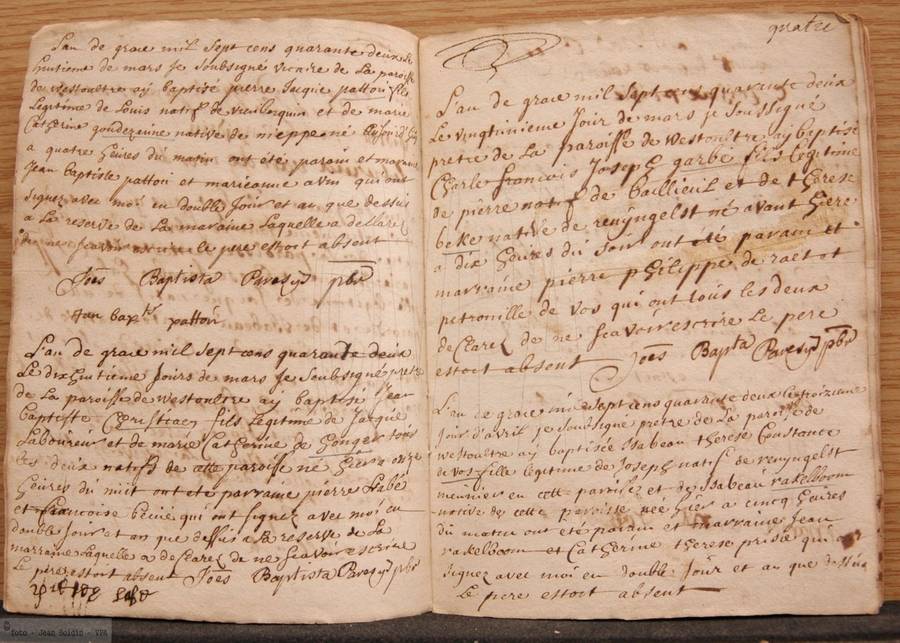 L'an de grace mil sept cens quarante deux le
huitieme de mars je soubsigné vicaire de La paroisse
de westoultre ay baptisé pierre Jacque pattou fils
Legitime de Louis natif de vieuberquin et de marie
Catherine goudezeune native de nieppe né aujourd'huy
a quatre heures du matin ont été parain et maraine
Jean baptiste pattou et marieanne avin qui ont
signez avec moi en double Jour et an que dessus
a La reserve de La maraine Laquelle a declarez
de ne scavoir ecrire le pere estoit absent
Joēs Baptista Paresys pbr
Jan bap:te pattou
L'an de grace mil sept cens quarante deux
Le dix huitieme Jours de mars je soubsigné pretre
de La paroisse de westoultre ay baptisé Jean
Baptiste Christiaen fils Legitime de Jacque
Laboureur et de marie Catherine de gongier tous
les deux natifs de cette paroisse né hier a onze
heures du nuit ont été parrame pierre Labé
et francoise beciié qui ont signez avec moi en
double Jour et an que dessus a La reserve de La
marraine Laquelle a declarez de ne scavoir escrire
Le pere estoit absent Joēs Baptista Paresys pbr
Labé
quatre
L'an de grace mil sept cens quarante deux
Le vingtinieme Jour de mars je soussigné
pretre de La paroisse de westoultre ay baptisé
Charle francois Joseph garbe fils legitime
de pierre natif de baillieul et de therese
beke native de renyngelst né avant hiere
a dix heures du soir ont été parain et
marraine pierre philippe de raet et
petronille de vos qui ont tous les deux
declarez de ne scavoir escrire Le pere
estoit absent Joēs Bapta Paresys pbr
L'an de grace mil sept cens quarante deux le troizieme
Jour d'avril je soussigné pretre de La paroisse de
westoultre ay baptisée Isabeau therese Constance
de vos fille legitime de Joseph natif de renyngelst
meunier en cette paroisse et de Isabeau rakelboom
native de cette paroisse née hier a cinq heures
du matin ont été parain et marraine Jean
rakelboom et Catherine therese prisie qui ont
signez avec moi en double Jour et an que dessus
Le pere estoit absent
foto - Jean Soldin - VVA